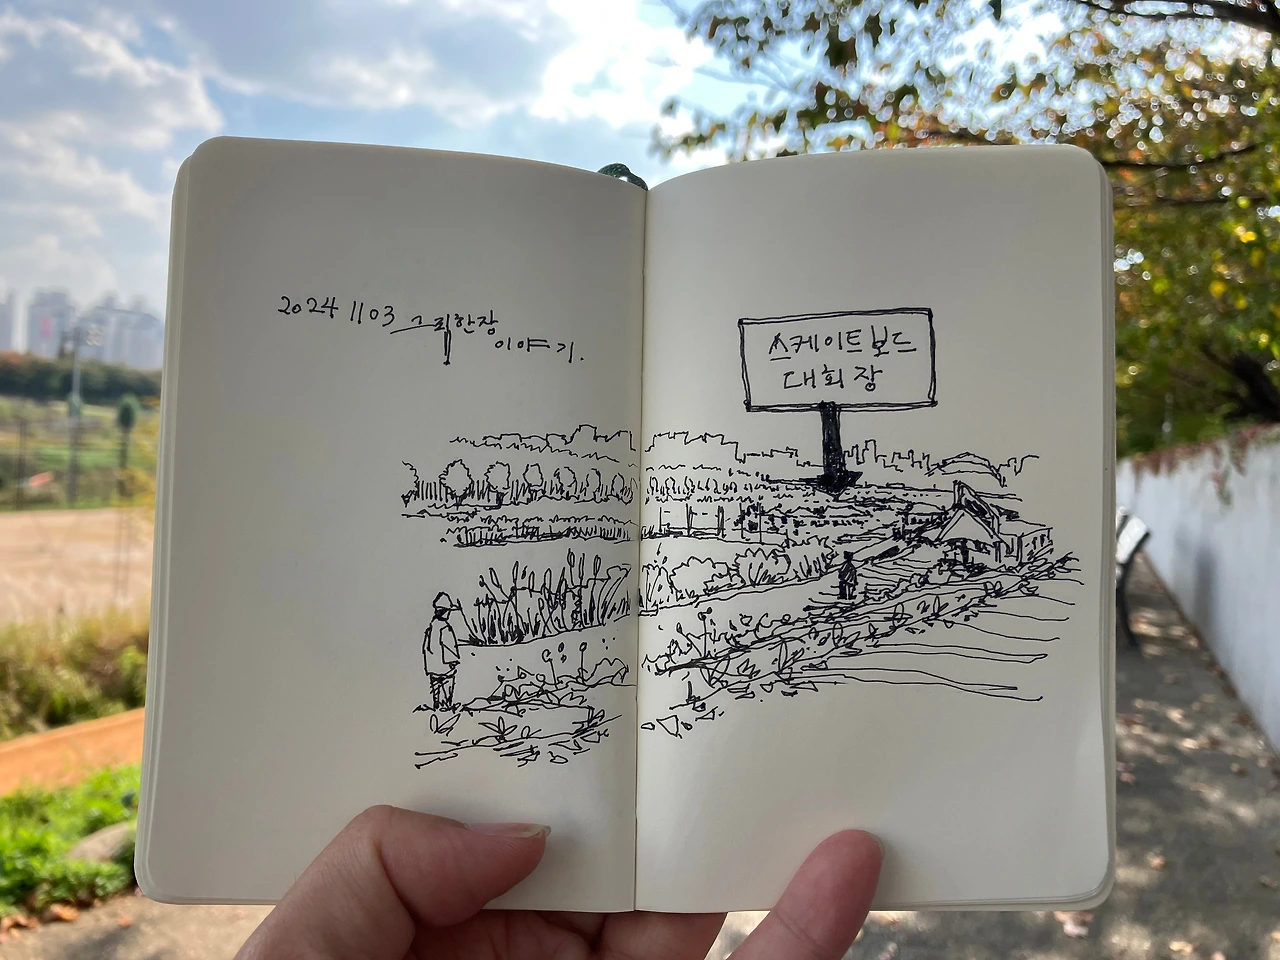 2024 1103 그림한장
이야기.
스케이트보드
대회장